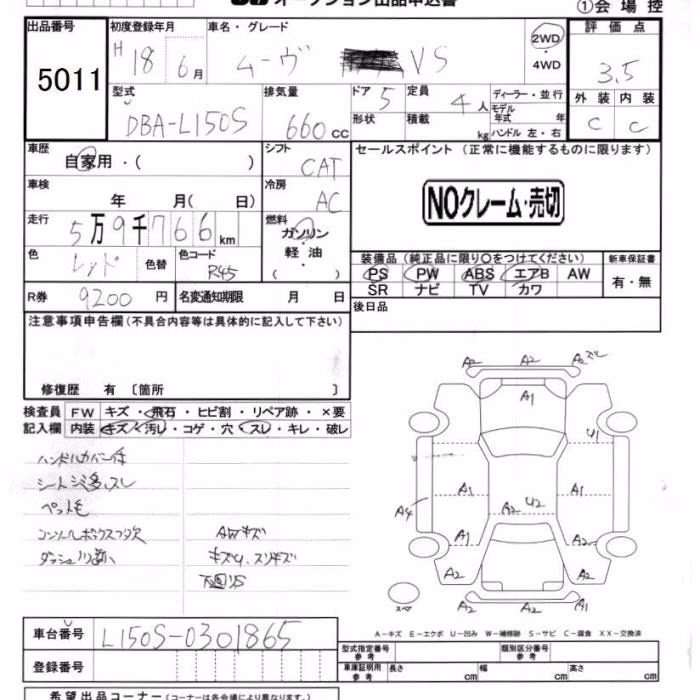 オークション出品申込書
①会場控
出品番号 5011
初度登録年月 H18 6月
車名・グレード ムーヴ VS
2WD・4WD
評価点 3.5
型式 DBA-L150S
排気量 660cc
ドア 5
形状
定員 4人
積載 kg
ディーラー・並行
モデル年式 年
ハンドル 左・右
外装 C
内装 C
車歴 自家用・( )
シフト CAT
セールスポイント (正常に機能するものに限ります)
車検 年 月( 日)
冷房 AC
NOクレーム・売切
走行 5万9千766km
燃料 ガソリン・軽油・( )
色 レッド 色替
色コード R45
装備品 (純正品に限り○をつけてください)
新車保証書
PS PW ABS エアB AW
有・無
SR ナビ TV カワ
R券 9200円
名変通知期限 月 日
後日品
注意事項申告欄(不具合内容等は具体的に記入して下さい)
修復歴 有 〔箇所 〕
検査員記入欄
FW キズ・飛石・ヒビ割・リペア跡・×要
内装 キズ・汚レ・コゲ・穴・スレ・キレ・破レ
ハンドルカバー付
シートシミ多、スレ
ペット毛
コンソールボックスフタ欠
AWキズ
キズU、スリキズ
下回りS
A2 A2 A2
A1
U1
A1 A1
A4
U2
A1 A2
A2 A2
A2 A2 A1
スペア
A-キズ E-エクボ U-凹み W-補修跡 S-サビ C-腐食 XX-交換済
車台番号 L150S-0301865
登録番号
型式指定番号 参考
類別区分番号 参考
車庫証明用 参考 長さ cm 幅 cm 高さ cm
希望出品コーナー(コーナーは各会場により異なります。)